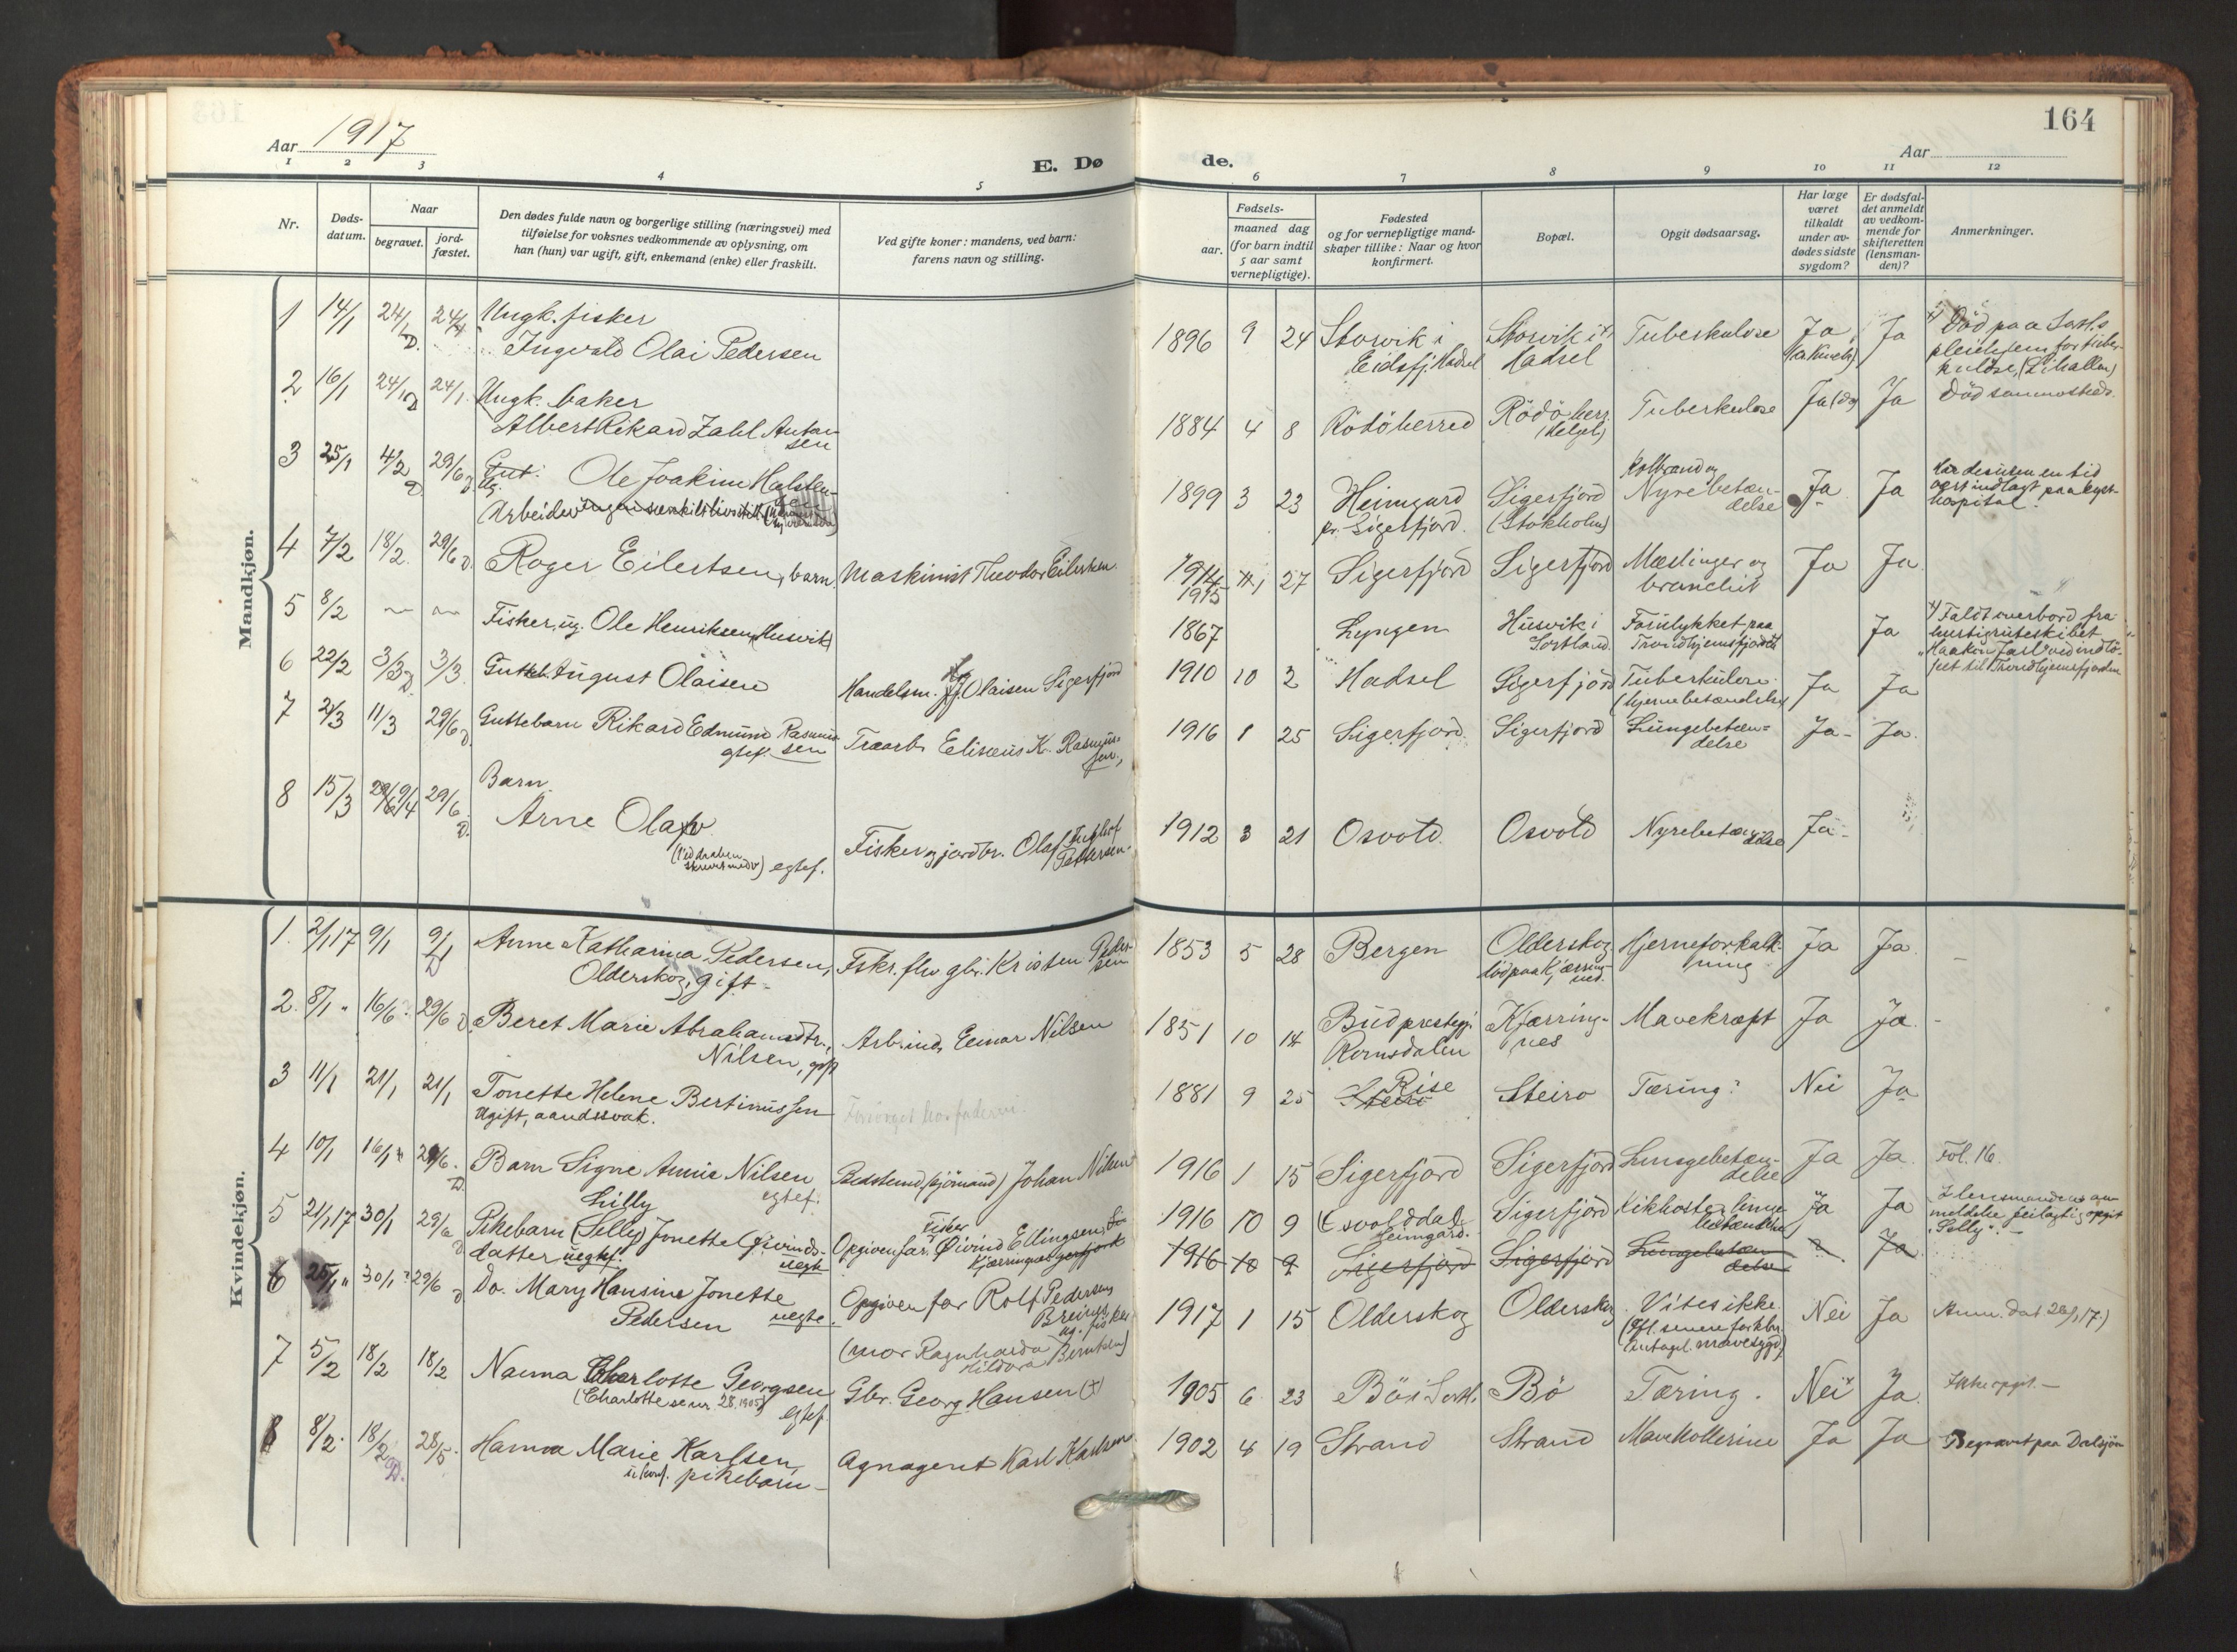 164
Aar 1917
E. Dø
de.
Aar
1 2 3 4 5 6 7 8 9 10 11 12
Nr.
Døds-
datum.
Naar
begravet.
jord-
fæstet.
Den dødes fulde navn og borgerlige stilling (næringsvei) med
tilføielse for voksnes vedkommende av oplysning, om
han (hun) var ugift, gift, enkemand (enke) eller fraskilt.
Ved gifte koner: mandens, ved barn:
farens navn og stilling.
Fødsels-
aar.
maaned dag
(for barn indtil
5 aar samt
vernepligtige).
Fødested
og for vernepligtige mand-
skaper tillike: Naar og hvor
konfirmert.
Bopæl.
Opgit dødsaarsag.
Har læge
været
tilkaldt
under av-
dødes sidste
sygdom?
Er dødsfal-
det anmeldt
av vedkom-
mende for
skifteretten
(lensman-
den)?
Anmerkninger.
Mandkjøn.
1 14/1 24/1 D. 24/4 Ungk. fisker
Ingvald Olai Pedersen
1896 9 24 Storvik i
Eidsfj. Hadsel
Storvik i
Hadsel
Tuberkulose Ja Ja
Död paa
pleiehjem for tuber-
kulose,
2 16/1 24/1 D 24/1. Ungk. baker
Albert Rikard Zahl Anton-
sen
1884 4 8 Rödö herred Rödö herr.
(Helgel)
Tuberkulose Ja Ja Död sammesteds.
3 25/1 4/2 D 29/6 D. Gut: Ole Joakim Halsten-
sen
Ug.
Arbeider
1899 3 23 Heimgard
pr. Sigerfjord.
Sigerfjord
(Stokholm)
Kolbrand og
Nyrebetæn-
delse
Ja Ja
Har desuten en tid
vært indlagt paa kyst-
hospital.
4 7/2 18/2. 29/6 D. Roger Eilertsen, barn. Maskinist Theodor Eilertsen.
1914
1915 1 27 Sigerfjord Sigerfjord Mæslinger og
bronchit
Ja Ja.
5 8/2 — — Fisker, ug. Ole Henriksen (Husvik)
1867 Lyngen Husvik i
Sortland.
Forulykket paa
Trondhjemsfjorden
Ja
x) Faldt overbord fra
hurtigruteskibet
"Haakon Jarl" ved indlö-
pet til Trondhjemsfjorden
6 22/2 3/3 D. 3/3. Gutteb. August Olaisen Handelsm. Olaisen Sigerfjord
1910 10 2 Hadsel Sigerfjord Tuberkulose.
(hjernebetændelse)
Ja Ja
7 2/3 11/3 29/6 D. Guttebarn Rikard Edmund Rasmus-
sen
egtef.
Træarb. Elisæus K. Rasmus-
sen,
1916 1 25 Sigerfjord. Sigerfjord Lungebetæn-
delse
Ja - Ja.
8 15/3 9/4 29/6 D. Barn.
Arne Olav
(ved daaben
skrevet med v) egtef.
Fisker og jordbr. Olaf
Pettersen.
1912 3 21 Osvold. Osvold Nyrebetæn-
delse
Ja -
Kvindekjøn.
1. 2/1 17 9/1 9/1 D Anne Katharina Pedersen,
Olderskog, gift -
Fskr. flv gbr. Kristen Peder-
sen
1853 5 28 Bergen Olderskog
död paa Kjærring-
nes.
Hjerneforkalk-
ning
Ja Ja. —
2. 8/1 " 16/6? 29/6 D. Beret Marie Abrahamsdtr.,
Nilsen, gift
Arb. inds Einar Nilsen
1851 10 14 Bud prestegj.
Romsdalen
Kjærring-
nes
Mavekræft Ja Ja. -
3 11/1 21/1 21/1 Tonette Helene Bertinussen
Ugift, aandssvak.
1881 9 25 Rise
Steiro
Steiro Tæring? Nei Ja
4 10/1 16/1 29/6. D. Barn Signe Annie Nilsen
egtef.
Bedstemd (sjömand) Johan Nilsen
1916 1 15 Sigerfjord Sigerfjord Lungebetæn-
delse
Ja Ja. Fol. 16.
5 21/1 17 30/1 29/6 D Lilly
Pikebarn (Selly) Jonette Öivinds-
datter uegtef. uegte
Opgiven far: Fisker Øivind Ellingsen,
Kjærringnes
1916 10 9 Osvolddal
Heimgard.
Sigerfjord Kikhoste, lunge
betændelse
Ja Ja
I lensmandens an-
meldelse feilagtig opgit
"Selly". -
1916 10 9 Sigerfjord Sigerfjord Lungebetæn
delse ?. Ja
6 25/1 " 30/1? 29/6 D Do. Mary Hansine Jonette
Pedersen uegte.
Opgiven far Rolf Pedersen
Breines
ug. fisker
(mor Ragnharda
Hildora Berntsen)
1917 1 15 Olderskog Olderskog. Vites ikke.
(Iflg. senere forklar.
antagel. mavesygd)
Nei Ja Anm. dat. 26/1 17.)
7 5/2 18/2 18/2 Nanna Charlotte Georgsen
(Charlotte se nr 28, 1905) egtef.
Gbr. Georg Hansen (+)
1905 6 23 Bö i Sortl. Bö Tæring. Nei Ja. Ikke opgit. —
8 8/2. 18/2 D. 28/5. Hanna Marie Karlsen,
ukonf. pikebarn -
Agnagent Karl Karlsen
1902 4 19 Strand Strand Mavekollerine Ja Ja Begravet paa